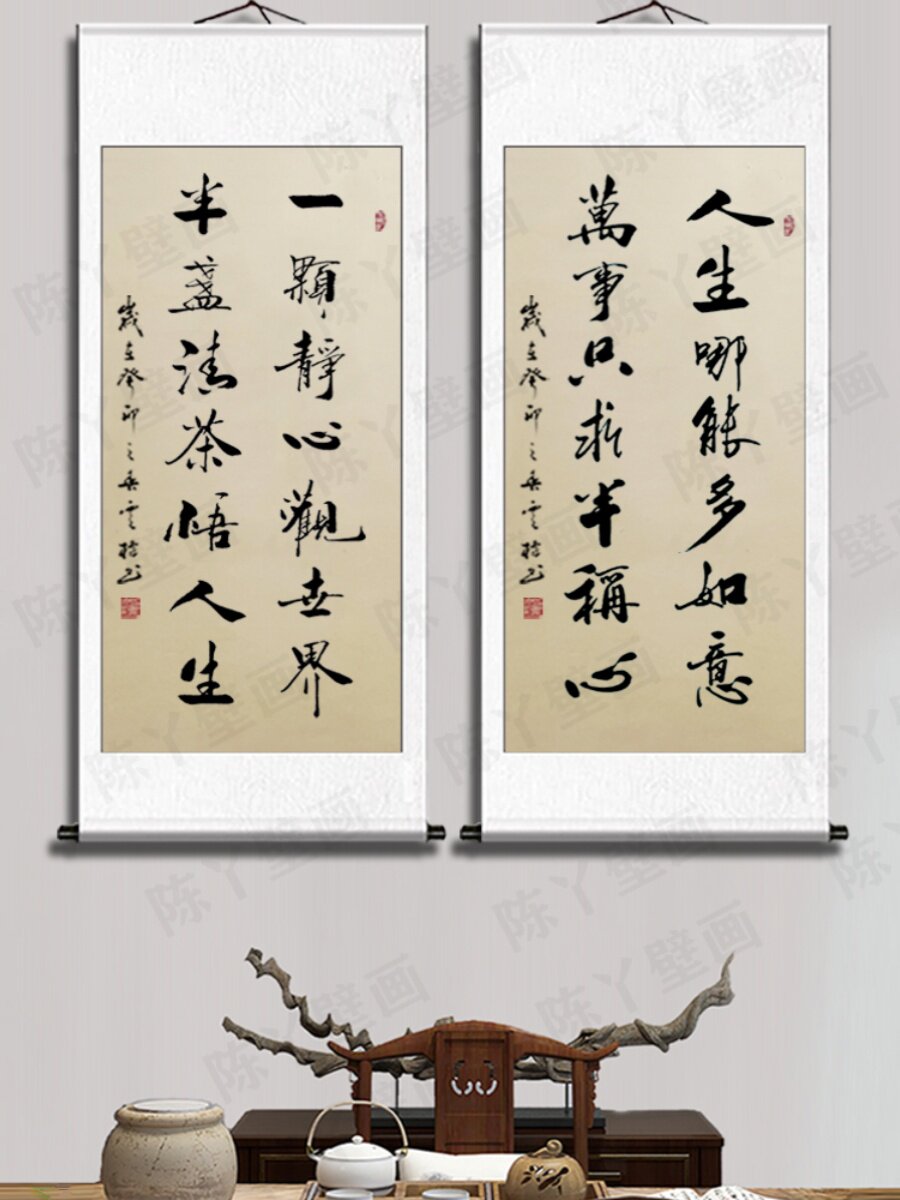 人生哪能多如意
萬事只求半稱心
歲在癸卯之春雲
一顆靜心觀世界
半盞清茶悟人生
歲在癸卯之春雲
陈丫壁画